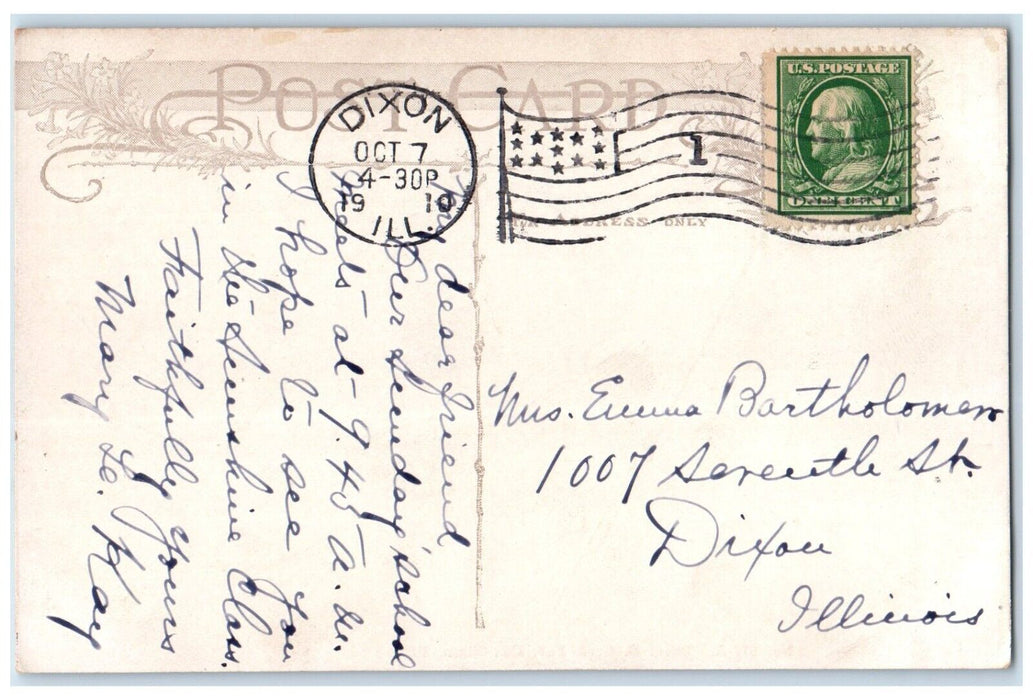 POST CARD
DIXON
OCT 7
4-30P
19 10
ILL.
1
U.S. POSTAGE
ADDRESS ONLY
My dear friend
Our Sunday school
meets at 9.45 a.m.
I hope to see you
in the Sunshine Class.
Faithfully Yours
Mary Kay
Mrs. Emma Bartholomew
1007 Seventh St.
Dixon
Illinois